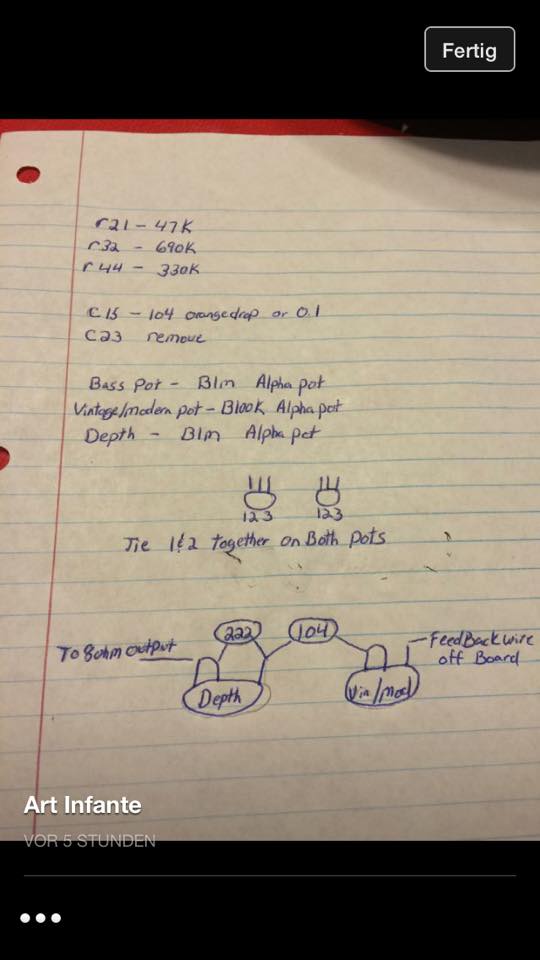 Fertig
r21 - 47K
r32 - 690K
r44 - 330K
C15 - 104 orangedrop or 0.1
C23 remove
Bass Pot - B1m Alpha pot
Vintage/modern pot - B100K Alpha pot
Depth - B1m Alpha pot
123 123
Tie 1&2 together on Both pots
222 104
FeedBack wire
To 8ohm output
off Board
Depth
Vin/Mod
Art Infante
VOR 5 STUNDEN